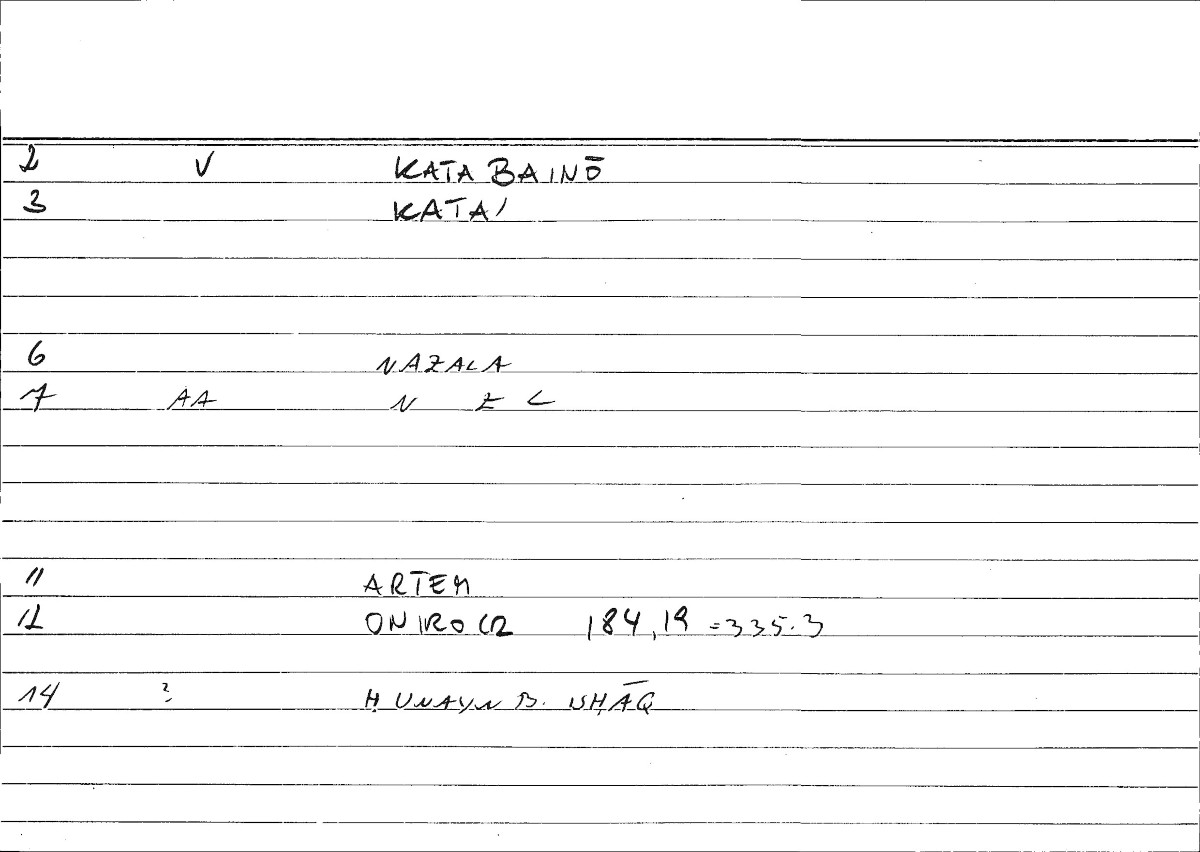 2 V KATA BAINŌ
3 KATA/
6 NAZALA
7 AA N Z L
11 ARTEM
12 ONIROCR 184,19 =335.3
14 ? ḤUNAYN B. ISḤĀQ